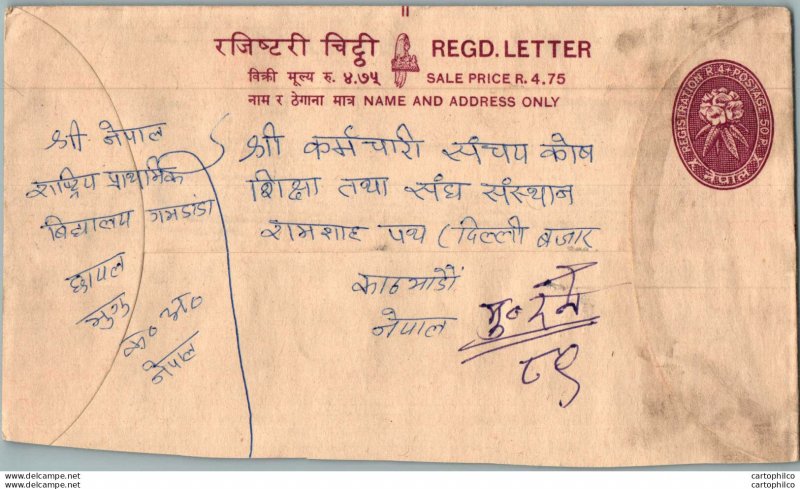 रजिष्टरी चिट्ठी REGD. LETTER
बिक्री मूल्य रु. ४.७५ SALE PRICE R. 4.75
नाम र ठेगाना मात्र NAME AND ADDRESS ONLY
REGISTRATION R. 4+POSTAGE 50 P.
नेपाल
श्री नेपाल
राष्ट्रिय प्राथमिक
विद्यालय गमडांडा
मुगु
क० अ०
नेपाल
श्री कर्मचारी संचय कोष
शिक्षा तथा संघ संस्थान
रामशाह पथ (दिल्ली बजार
काठमाडौं
नेपाल
मु०
८९
www.delcampe.net
cartophilco
cartophilco